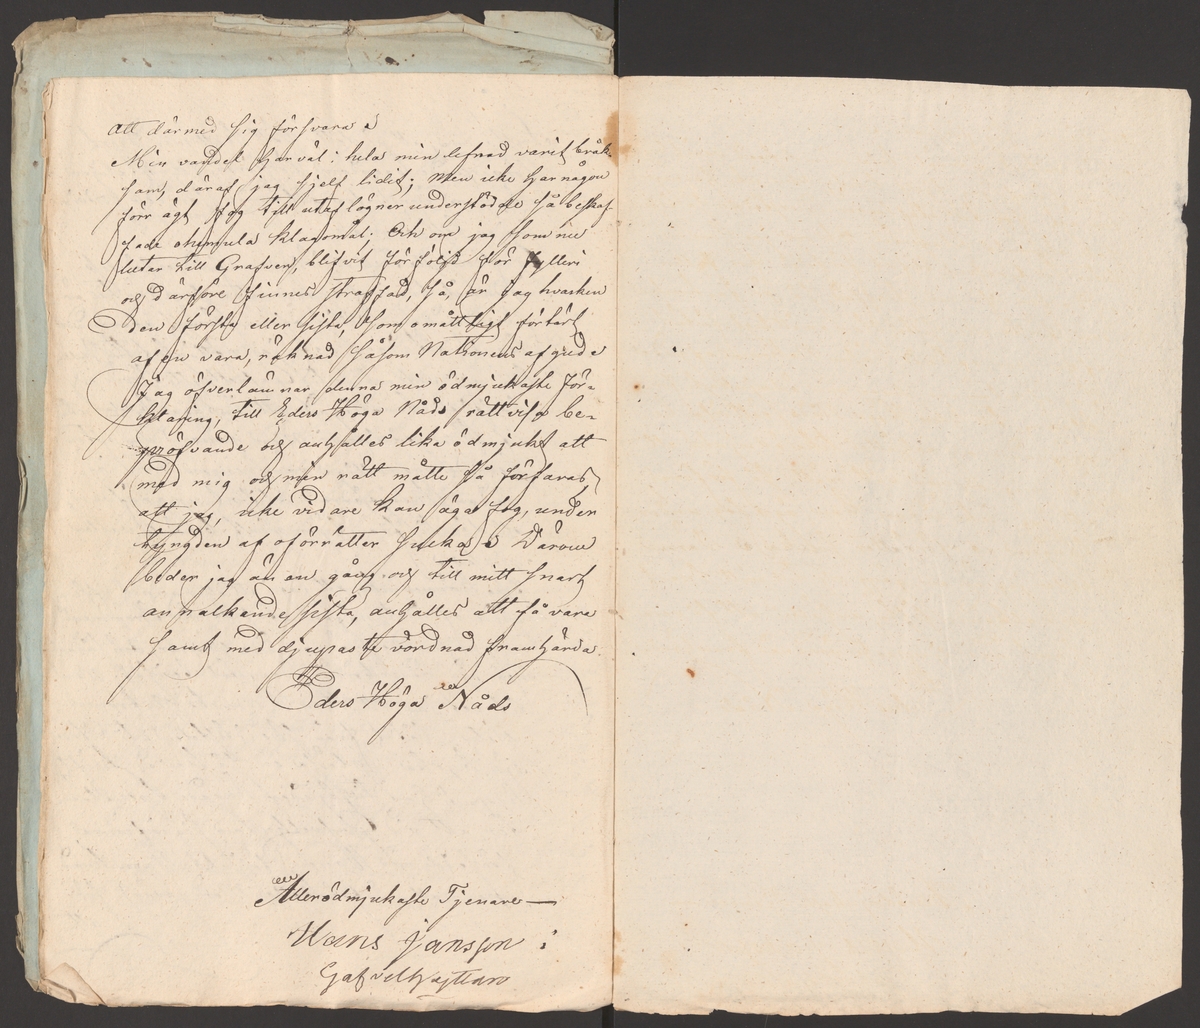 att därmed sig försvara
Min vandel har väl i hela min lefnad varit bråk-
sam, däraf jag sjelf lidit; Men icke har någon
förr ägt fog till utaf lögner understödde så beskaf-
fade klagomål; Och om jag som nu
lutar till Grafven, blifvit förföljd för fylleri
och därföre finnes straffad, så, är jag hvarken
den första eller sista, som omåttligt förtärt
af en vara, räknad såsom Nationens afgude
Jag öfverlämnar denna min ödmjukaste För-
klaring, till Eders Höga Nåds rättvisa be-
pröfvande och anhålles lika ödmjukt att
med mig och min rätt måtte så förfaras,
att jag, icke vidare kan äga fog, under
tyngden af oförrätter sucka Därom
beder jag än en gång och till mitt snart
annalkande sista, anhålles att få vara
samt med djupaste vördnad framhärda
Eders Höga Nåds
Allerödmjukaste Tjenare —
Hans Jansson i
Gafvelhyttan